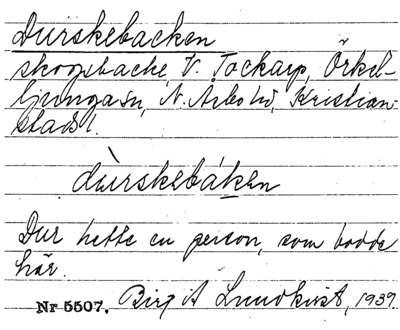 Durskebacken
skogsbacke V. Tockarp, Örkel-
ljungasn, N. Åsbohd, Kristian-
stads l.
dùrskebáken
Dur hette en person, som bodde
här.
Nr 5507. Birg A Lundkvist, 1937